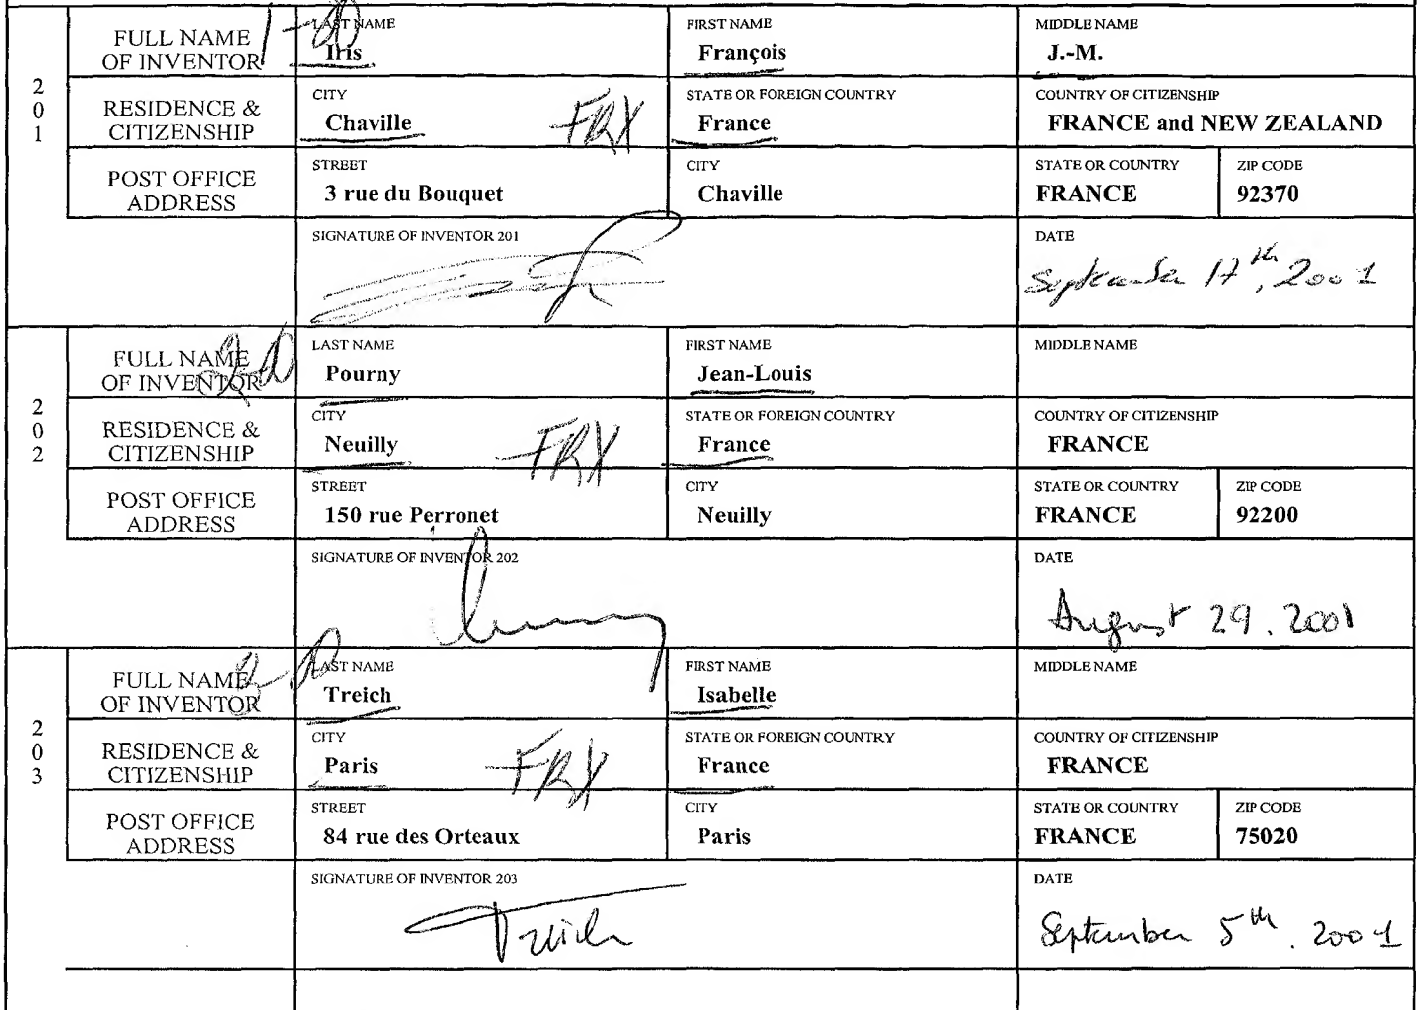 FULL NAME OF INVENTOR 1-00 LAST NAME Iris FIRST NAME François MIDDLE NAME J.-M.
201 RESIDENCE & CITIZENSHIP CITY Chaville FRX STATE OR FOREIGN COUNTRY France COUNTRY OF CITIZENSHIP FRANCE and NEW ZEALAND
POST OFFICE ADDRESS STREET 3 rue du Bouquet CITY Chaville STATE OR COUNTRY FRANCE ZIP CODE 92370
SIGNATURE OF INVENTOR 201 DATE September 17th, 2001
FULL NAME OF INVENTOR LAST NAME Pourny FIRST NAME Jean-Louis MIDDLE NAME
202 RESIDENCE & CITIZENSHIP CITY Neuilly FRX STATE OR FOREIGN COUNTRY France COUNTRY OF CITIZENSHIP FRANCE
POST OFFICE ADDRESS STREET 150 rue Perronet CITY Neuilly STATE OR COUNTRY FRANCE ZIP CODE 92200
SIGNATURE OF INVENTOR 202 DATE August 29, 2001
FULL NAME OF INVENTOR LAST NAME Treich FIRST NAME Isabelle MIDDLE NAME
203 RESIDENCE & CITIZENSHIP CITY Paris FRX STATE OR FOREIGN COUNTRY France COUNTRY OF CITIZENSHIP FRANCE
POST OFFICE ADDRESS STREET 84 rue des Orteaux CITY Paris STATE OR COUNTRY FRANCE ZIP CODE 75020
SIGNATURE OF INVENTOR 203 Treich DATE September 5th, 2001